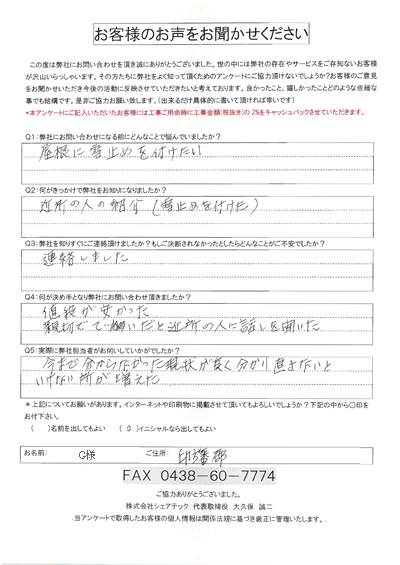 お客様のお声をお聞かせください
この度は弊社にお問い合わせを頂き誠にありがとうございました。世の中には弊社の存在やサービスをご存知ないお客様
が沢山いらっしゃいます。その方たちに弊社をよく知って頂くためのアンケートにご協力頂けないでしょうか?お客様のご意見
をお聞かせいただき今後の活動に反映させていただきたいと考えております。良かったこと、嬉しかったことどのような些細な
事でも結構です。是非ご協力お願い致します。（出来るだけ具体的に書いて頂ければ幸いです）
*本アンケートにご記入いただいたお客様には工事ご用命時に工事金額(税抜き)の2%をキャッシュバックさせていただきます。
Q1:弊社にお問い合わせになる前にどんなことで悩んでいましたか?
屋根に雪止めを付けたい
Q2:何がきっかけで弊社をお知りになりましたか?
近所の人の紹介(雪止めを付けた)
Q3:弊社を知りすぐにご連絡頂けましたか?もしご決断されなかったとしたらどんなことがご不安でしたか?
連絡しました
Q4:何が決め手となり弊社にお問い合わせ頂きましたか?
値段が安かった
親切でで働いだと近所の人に話しを聞いた
Q5:実際に弊社担当者がお伺いしていかがでしたか?
今まで分からなかった現状が良く分かり直さないと
いけない所が増えた
*上記についてお願いがあります。インターネットや印刷物に掲載させて頂いてもよろしいでしょうか?下記の中から〇印を
お付下さい。
(　)名前を出してもよい　(〇)イニシャルなら出してもよい
お名前: C様 ご住所: 印旛郡
FAX 0438-60-7774
ご協力ありがとうございました。
株式会社シェアテック 代表取締役 大久保 誠二
当アンケートで取得したお客様の個人情報は関係法規に基づき厳正に管理いたします。